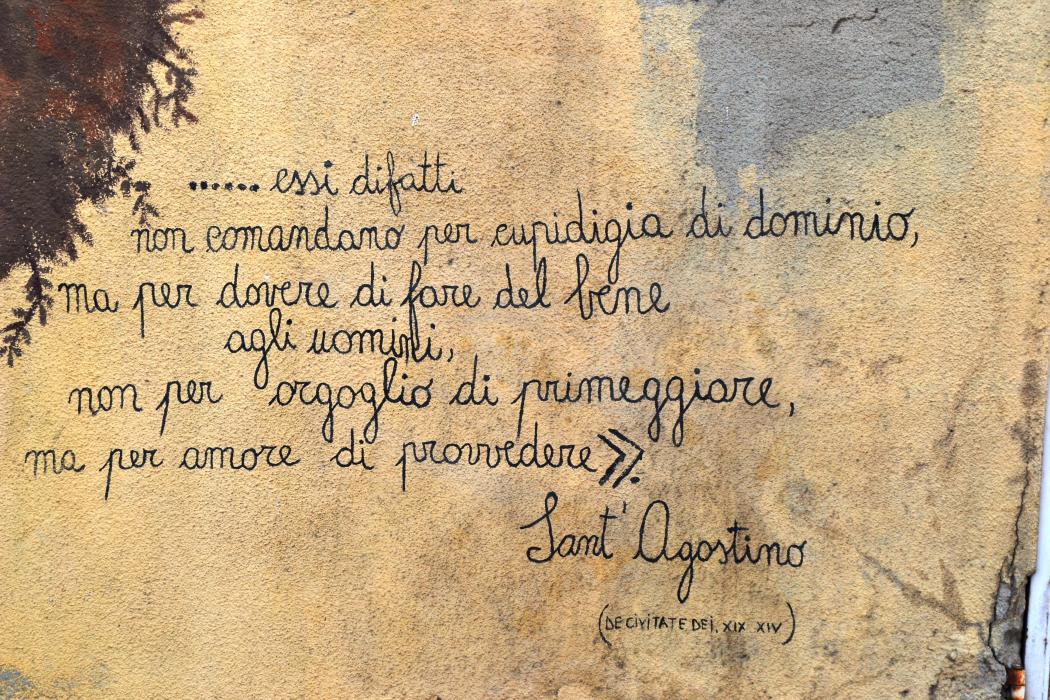 ...... essi difatti
non comandano per cupidigia di dominio,
ma per dovere di fare del bene
agli uomini,
non per orgoglio di primeggiare,
ma per amore di provvedere».
Sant' Agostino
(DE CIVITATE DEI, XIX XIV)